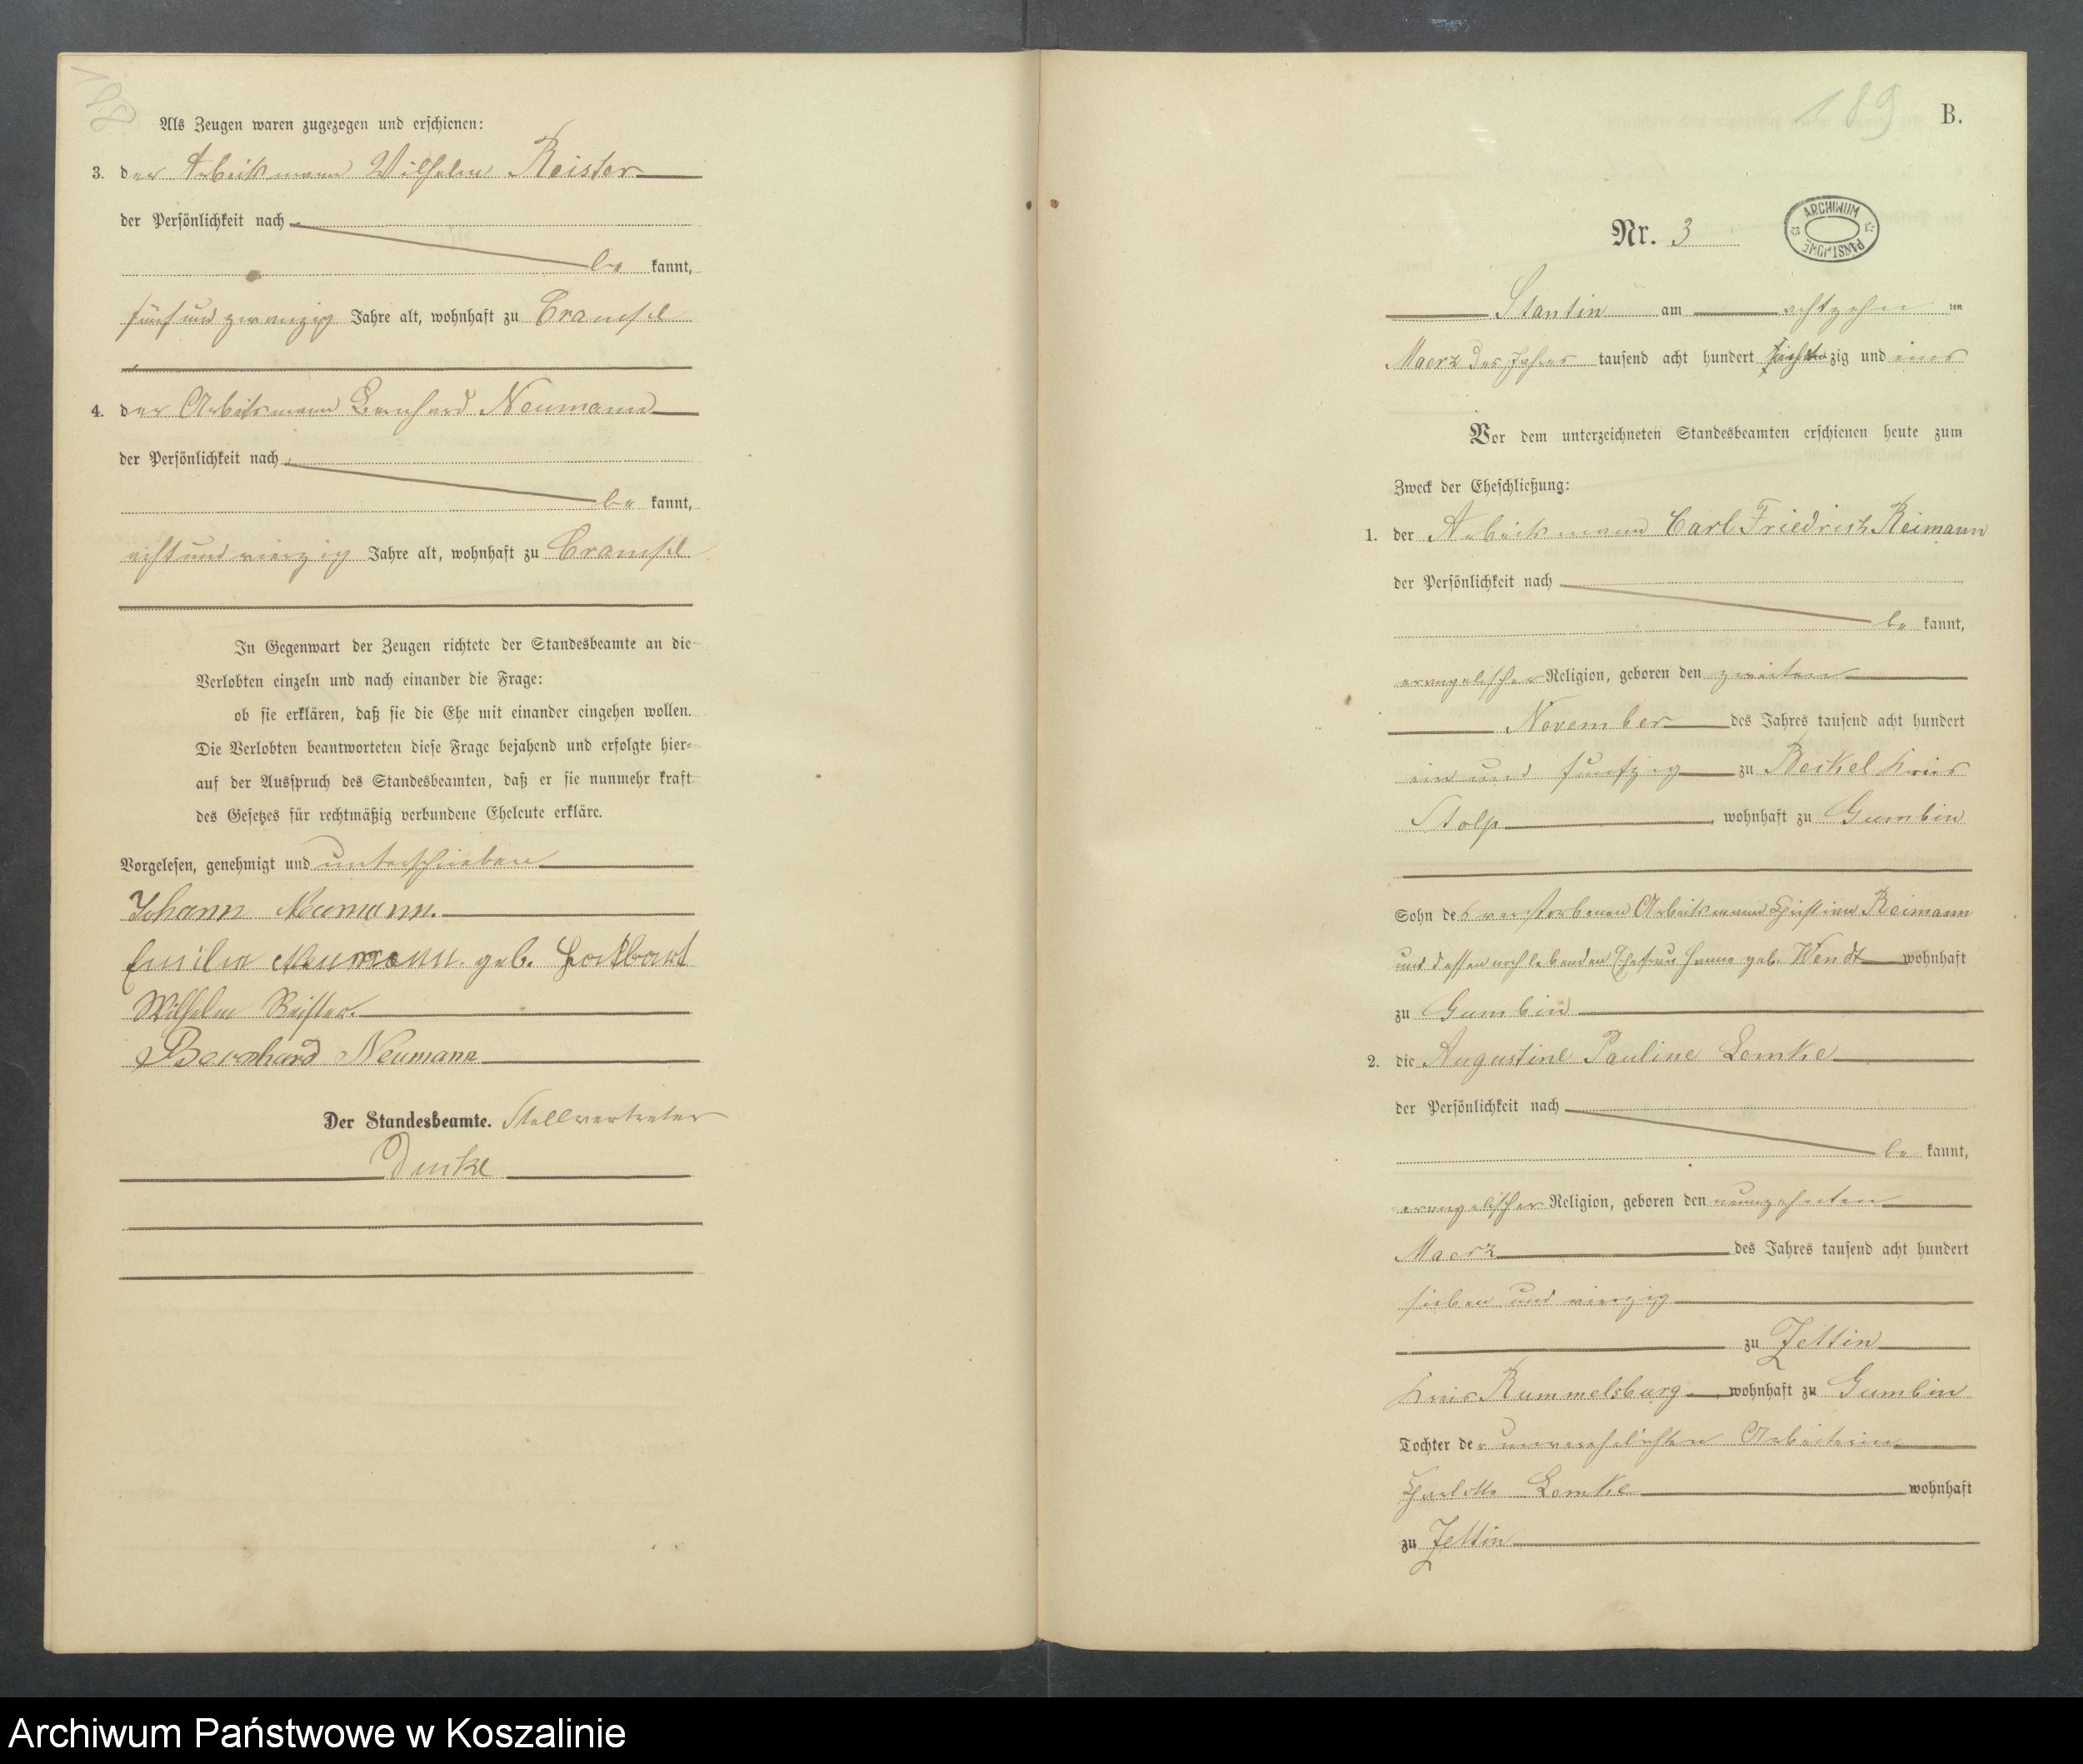 Als Zeugen waren zugezogen und erschienen:
3. der Arbeitsmann Wilhelm Reister
der Persönlichkeit nach
be kannt,
fünf und zwanzig Jahre alt, wohnhaft zu
4. der Arbeitsmann Bernhard Neumann
der Persönlichkeit nach
be kannt,
acht und vierzig Jahre alt, wohnhaft zu
In Gegenwart der Zeugen richtete der Standesbeamte an die
Verlobten einzeln und nach einander die Frage:
ob sie erklären, daß sie die Ehe mit einander eingehen wollen.
Die Verlobten beantworteten diese Frage bejahend und erfolgte hier-
auf der Ausspruch des Standesbeamten, daß er sie nunmehr kraft
des Gesetzes für rechtmäßig verbundene Eheleute erkläre.
Vorgelesen, genehmigt und unterschrieben
Johann Neumann.
Emilie Neumann. geb.
Wilhelm Reister.
Bernhard Neumann
Der Standesbeamte. Stellvertreter
189
B.
Nr. 3
ARCHIWUM PAŃSTWOWE
Stantin am achtzehn ten
Maerz des Jahres tausend acht hundert zig und eins
Vor dem unterzeichneten Standesbeamten erschienen heute zum
Zweck der Eheschließung:
1. der Arbeitsmann Carl Friedrich Reimann
der Persönlichkeit nach
be kannt,
evangelischer Religion, geboren den zweiten
November des Jahres tausend acht hundert
ein und funfzig zu Beckel Kreis
Stolp, wohnhaft zu Gumbin
Sohn des verstorbenen Arbeitsmann Christian Reimann
und dessen noch lebenden Ehefrau Hanne geb. Wendt wohnhaft
zu Gumbin
2. die Augustine Pauline Lemke
der Persönlichkeit nach
be kannt,
evangelischer Religion, geboren den neunzehnten
Maerz des Jahres tausend acht hundert
sieben und vierzig
zu Zettin
Kreis Rummelsburg, wohnhaft zu Gumbin
Tochter der unverehelichten Arbeiterin
Charlotte Lemke wohnhaft
zu Zettin
Archiwum Państwowe w Koszalinie